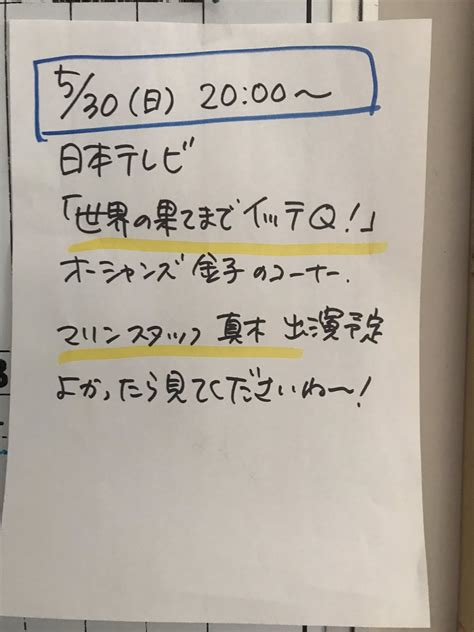 5/30(日) 20:00〜
日本テレビ
「世界の果てまでイッテQ!」
オーシャンズ 金子のコーナー.
マリンスタッフ 真木 出演予定
よかったら見てくださいね〜!